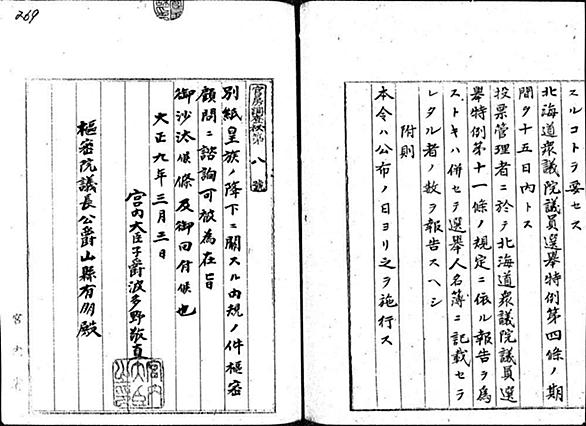 スルコトヲ要セス
北海道衆議院議員選舉特例第四條ノ期
間ヲ十五日內トス
投票管理者ニ於テ北海道衆議院議員選
舉特例第十一條ノ規定ニ依ル報告ヲ爲
ストキハ併セテ選舉人名簿ニ記載セラ
レタル者ノ數ヲ報告スヘシ
附則
本令ハ公布ノ日ヨリ之ヲ施行ス
269
官房調查秘第八號
別紙皇族ノ降下ニ關スル內規ノ件樞密
顧問ニ諮詢可被為在旨
御沙汰候條及御回付候也
大正九年三月三日
宮內大臣子爵波多野敬直
樞密院議長公爵山縣有朋殿
宮內省